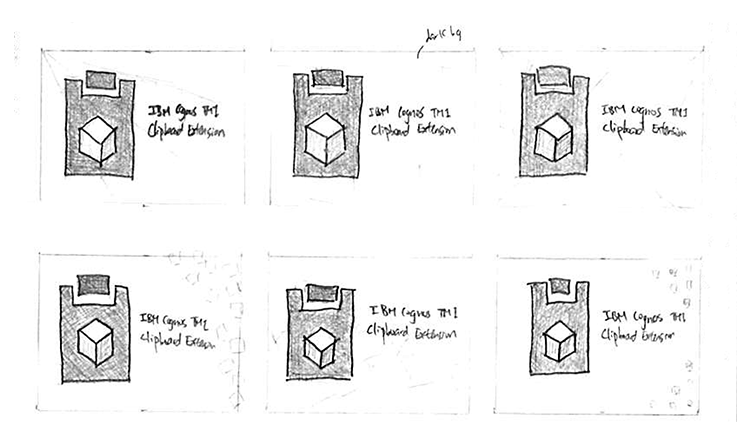 dark bg
IBM Cognos TM1
Clipboard Extension
IBM Cognos TM1
Clipboard Extension
IBM Cognos TM1
Clipboard Extension
IBM Cognos TM1
Clipboard Extension
IBM Cognos TM1
Clipboard Extension
IBM Cognos TM1
Clipboard Extension